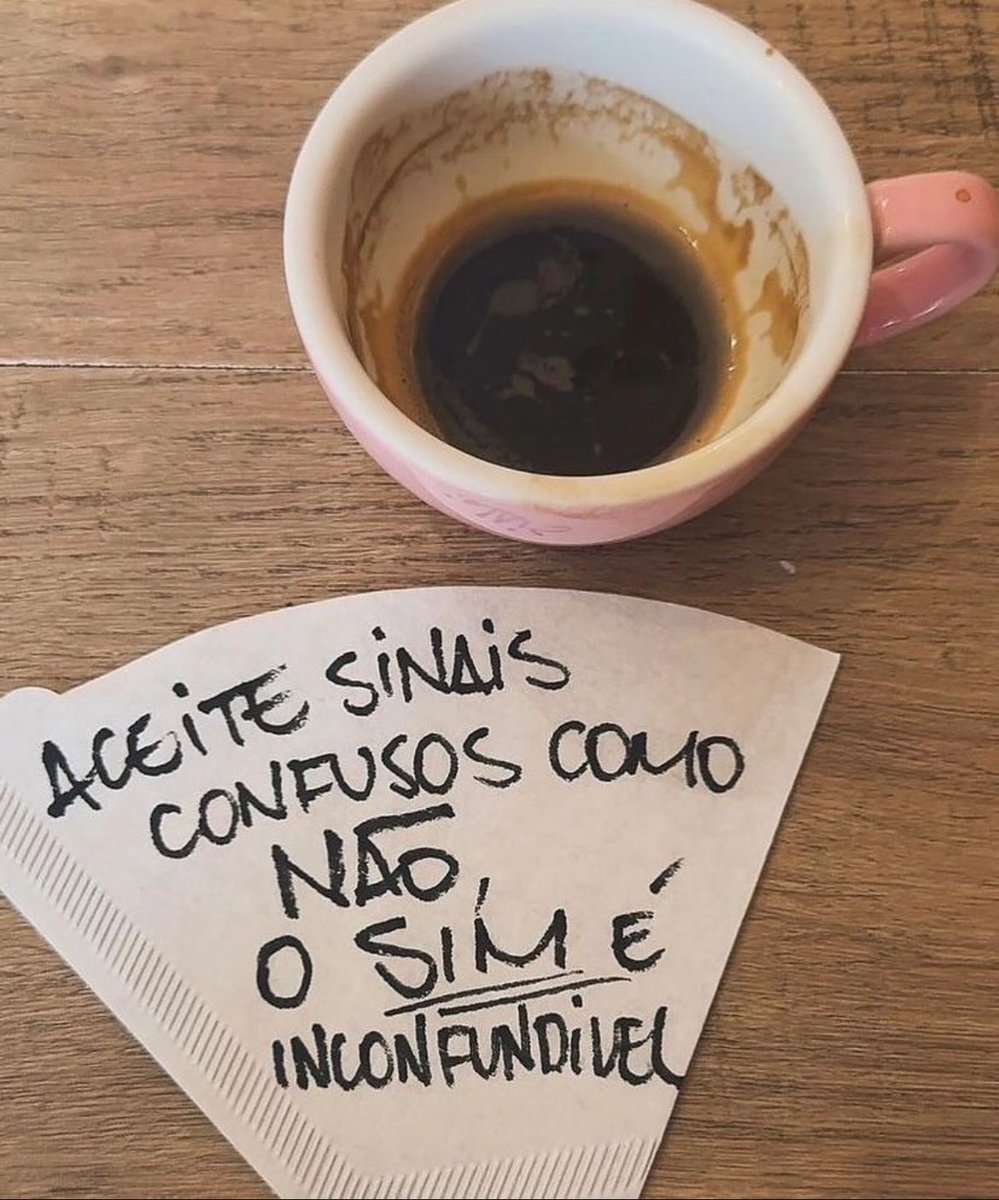 ACEITE SINAIS
CONFUSOS COMO
NÃO,
O SIM É
INCONFUNDÍVEL